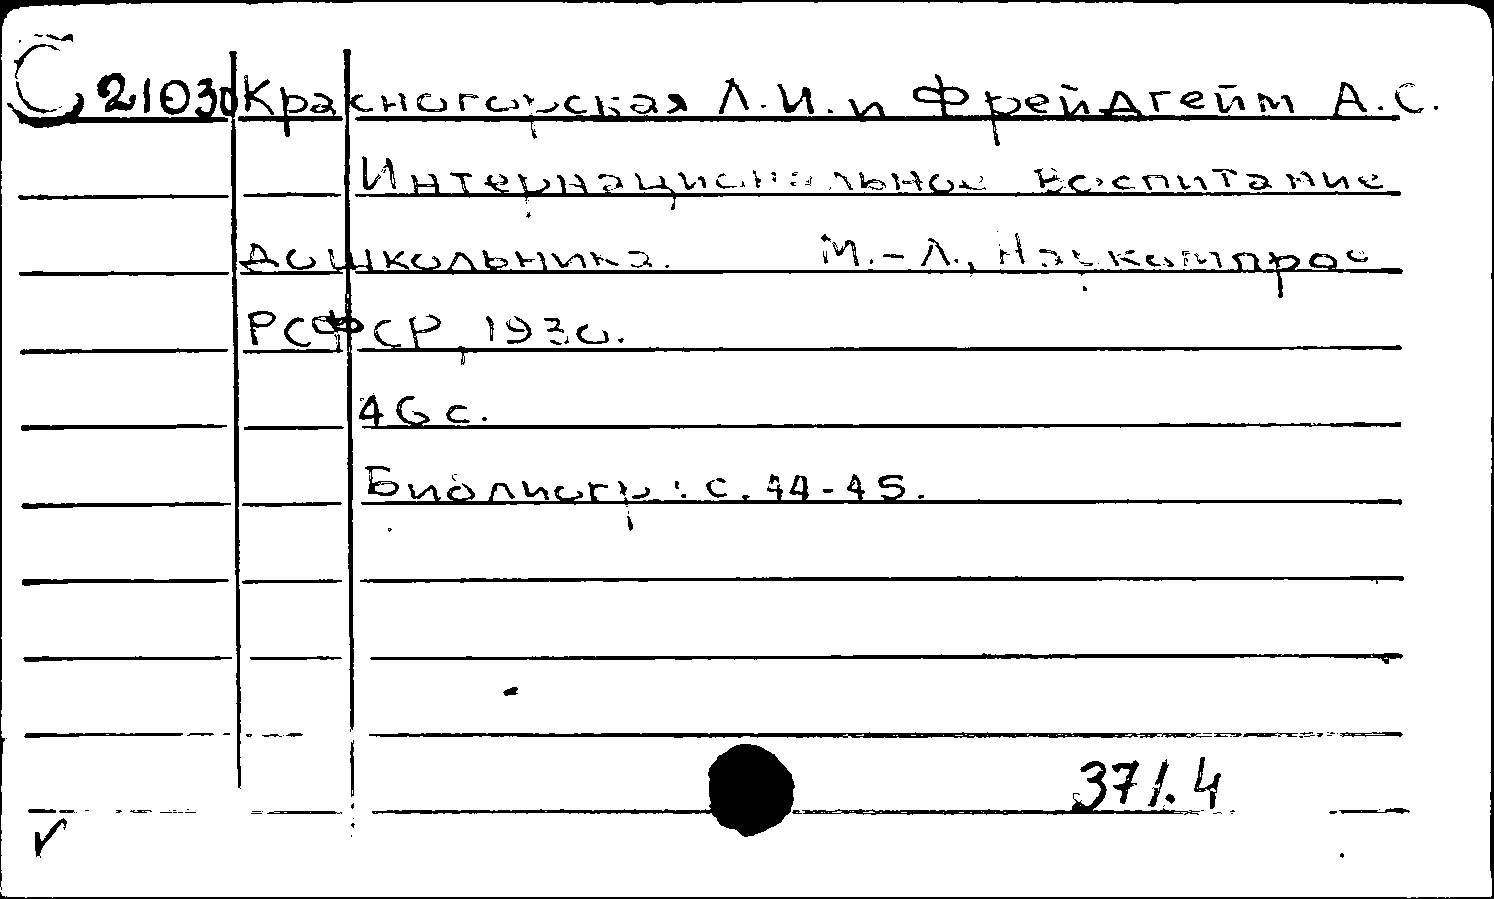 С 21030 Красногорская Л.И. и Фрейдгейм А.С.
Интернациональное воспитание
дошкольника. М.-Л., Наркомпрос
РСФСР, 1930.
46 с.
Библиогр: с. 44-45.
371.4